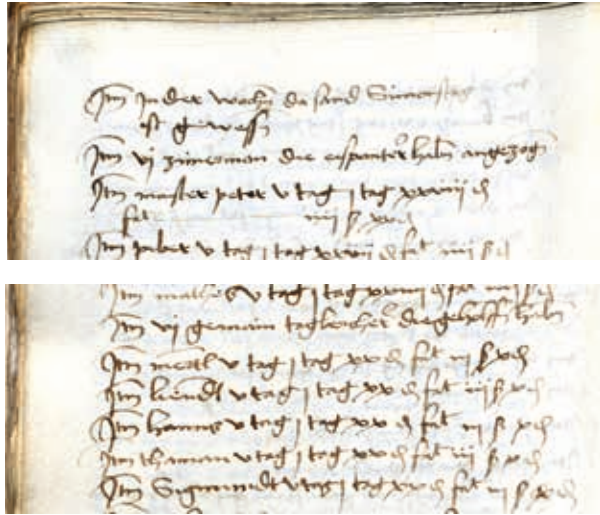 Itm In der wochn da sand Simons tag
ist gewesn
Itm vj zimerman die eyspanter habn angezogn
Itm maister peter v tag j tag xxviiij d
fat iiij ß xxv d
Itm v tag j tag d fat iiij ß d
Itm mathes v tag j tag xxviij d fat iiij ß d
Itm vj gemain tagbercher die geholffn habn
Itm v tag j tag xx d fat iij ß x d
Itm liendl v tag j tag xx d fat iij ß x d
Itm hanns v tag j tag xx d fat iij ß x d
Itm thaman v tag j tag xx d fat iij ß x d
Itm Sigmundt v tag j tag xx d fat iij ß x d